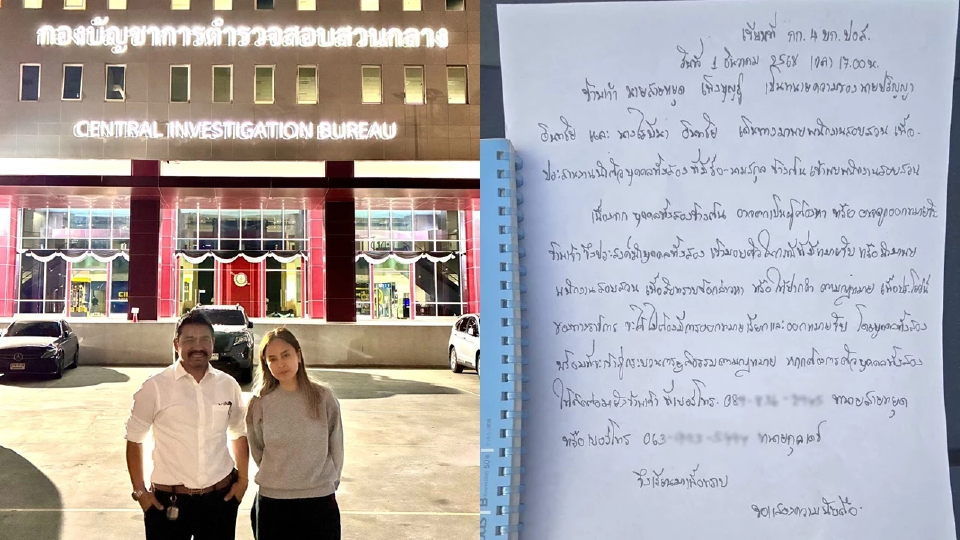 กองบัญชาการตำรวจสอบสวนกลาง
CENTRAL INVESTIGATION BUREAU
เขียนที่ กก. 4 บก. ปอศ.
วันที่ 1 ธันวาคม 2568 เวลา 17.00 น.
ข้าพเจ้า นายสายหยุด เพ็งบุญชู เป็นทนายความของ นายปริญญา
และ เดินทางมาพบพนักงานสอบสวน เพื่อ
ประสานงานนำตัวบุคคลทั้งสอง ที่มีชื่อ-นามสกุล ข้างต้น เข้าพบพนักงานสอบสวน
เนื่องจาก บุคคลทั้งสองข้างต้น อาจตกเป็นผู้ต้องหา หรือ อาจถูกออกหมายจับ
ข้าพเจ้า จึงประสงค์นำบุคคลทั้งสอง เข้ามอบตัว
พนักงานสอบสวน เพื่อรับทราบข้อกล่าวหา หรือ ให้ปากคำ ตามกฎหมาย เพื่อประโยชน์
ของทางราชการ จะได้ไม่ต้องมีการออกหมายเรียกและออกหมายจับ โดยบุคคลทั้งสอง
พร้อมที่จะเข้าสู่กระบวนการยุติธรรมตามกฎหมาย หากต้องการตัวบุคคลทั้งสอง
ให้ติดต่อมายังข้าพเจ้า ที่เบอร์โทร. ทนายสายหยุด
หรือเบอร์โทร 063
จึงเรียนมาเพื่อทราบ
ขอแสดงความนับถือ